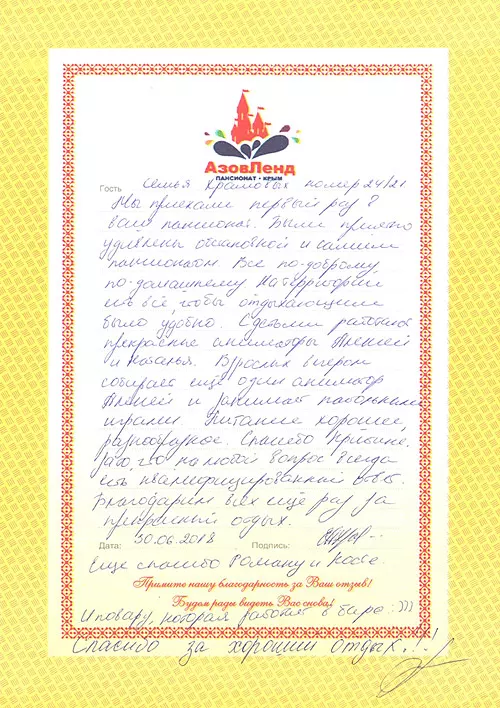 АзовЛенд
ПАНСИОНАТ • КРЫМ
Гость Семья Храмовых номер 24/21
Мы приехали первый раз в
ваш пансионат. Были приятно
удивлены обстановкой и самим
пансионатом. Все по-доброму,
по-домашнему. На территории
есть всё, чтобы отдыхающим
было удобно. С детьми работают
прекрасные аниматоры Алексей
и Наталья. Взрослых вечером
собирает еще один аниматор
Алексей и занимает настольными
играми. Питание хорошее,
разнообразное. Спасибо Кристине,
за то, что на любой вопрос всегда
есть квалифицированный ответ.
Благодарим всех ещё раз за
прекрасный отдых.
Дата: 30.06.2018 Подпись:
Еще спасибо Роману и Косте.
Примите нашу благодарность за Ваш отзыв!
Будем рады видеть Вас снова!
И повару, которая работает в баре :)))
Спасибо за хороший отдых!!